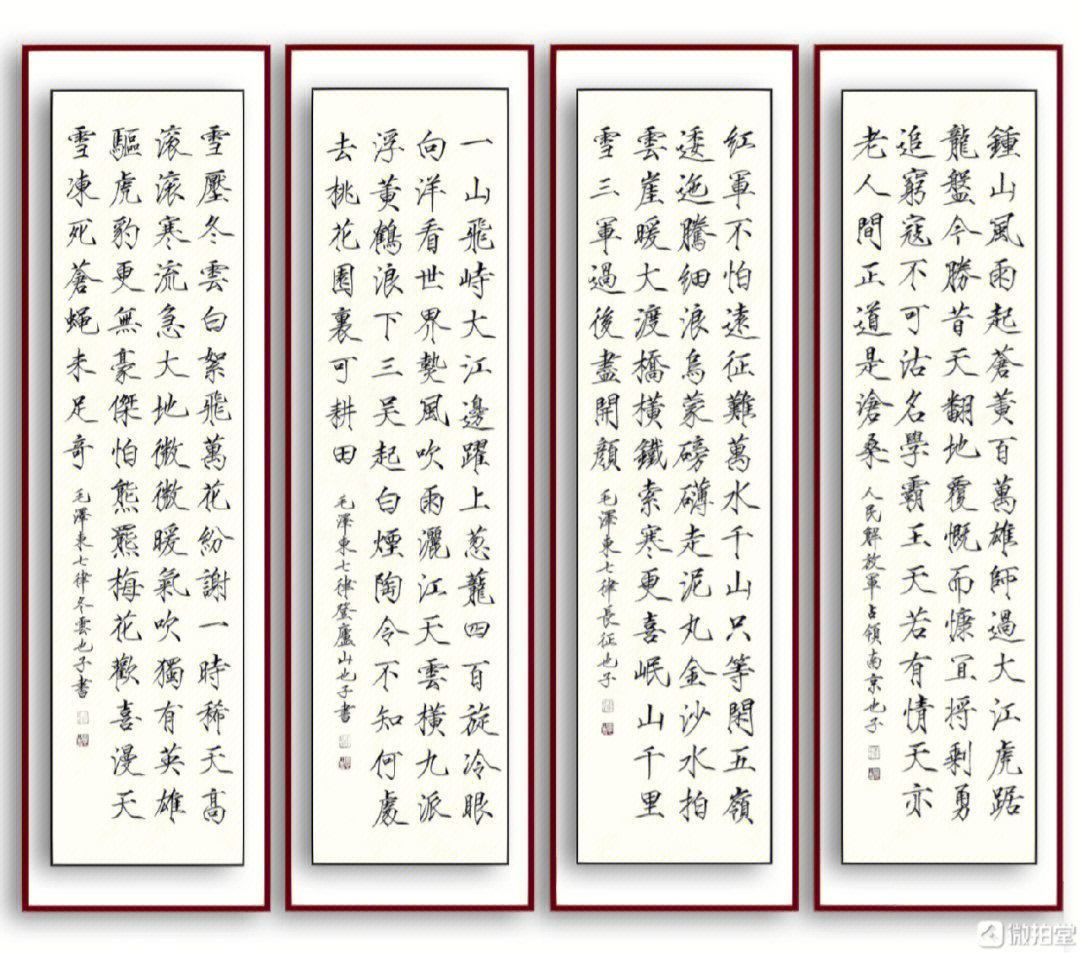 鍾山風雨起蒼黃百萬雄師過大江虎踞
龍盤今勝昔天翻地覆慨而慷宜將剩勇
追窮寇不可沽名學霸王天若有情天亦
老人間正道是滄桑 人民解放軍占領南京也子
紅軍不怕遠征難萬水千山只等閑五嶺
逶迤騰細浪烏蒙磅礴走泥丸金沙水拍
雲崖暖大渡橋橫鐵索寒更喜岷山千里
雪三軍過後盡開顏 毛澤東七律長征也子
一山飛峙大江邊躍上葱蘢四百旋冷眼
向洋看世界熱風吹雨灑江天雲橫九派
浮黃鶴浪下三吳起白煙陶令不知何處
去桃花園裏可耕田 毛澤東七律登廬山也子書
雪壓冬雲白絮飛萬花紛謝一時稀天高
滾滾寒流急大地微微暖氣吹獨有英雄
驅虎豹更無豪傑怕熊羆梅花歡喜漫天
雪凍死蒼蠅未足奇 毛澤東七律冬雲也子書
微拍堂